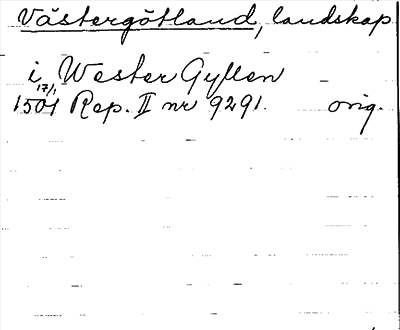 Västergötland, landskap
i Wester Gyllen
17/1
1501 Rep. II nr 9291. orig.